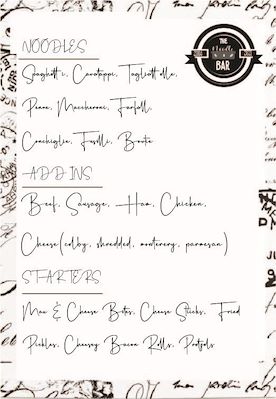 NOODLES
THE
Noodle
BAR
Spaghetti, Cavatappi, Tagliatelle,
Penne, Maccheroni, Farfall,
Conchiglie, Fusilli,
ADD INS
Beef, Sausage, Ham, Chicken,
Cheese(colby, shredded, monterery, parmesan)
STARTERS
Mac & Cheese Bites, Cheese Sticks, Fried
Pickles, Cheesey Bacon Rolls, Pretzels